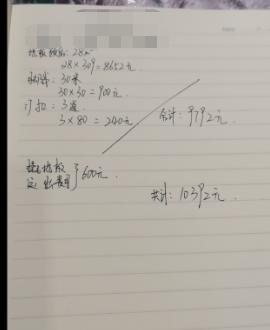 地板数据: 28㎡
28×309=8652元
踢脚: 30米
30×30=900元
门扣: 3道
3×80=240元
合计: 9792元
600元
共计: 10392元